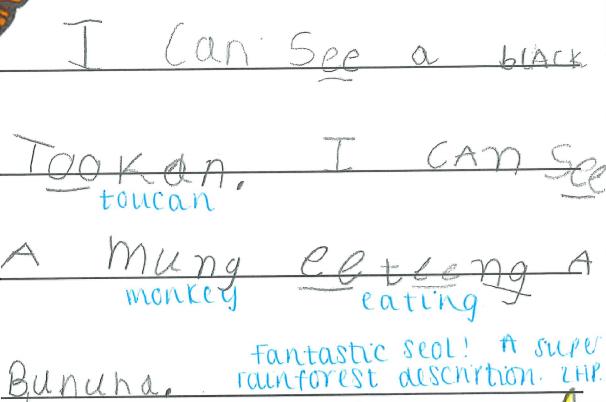 I Can See a blACK
Tookan. I CAN See
toucan
A mung eeteeng A
monkey eating
Fantastic Seol! A super
Bununa. rainforest description. 2HP.